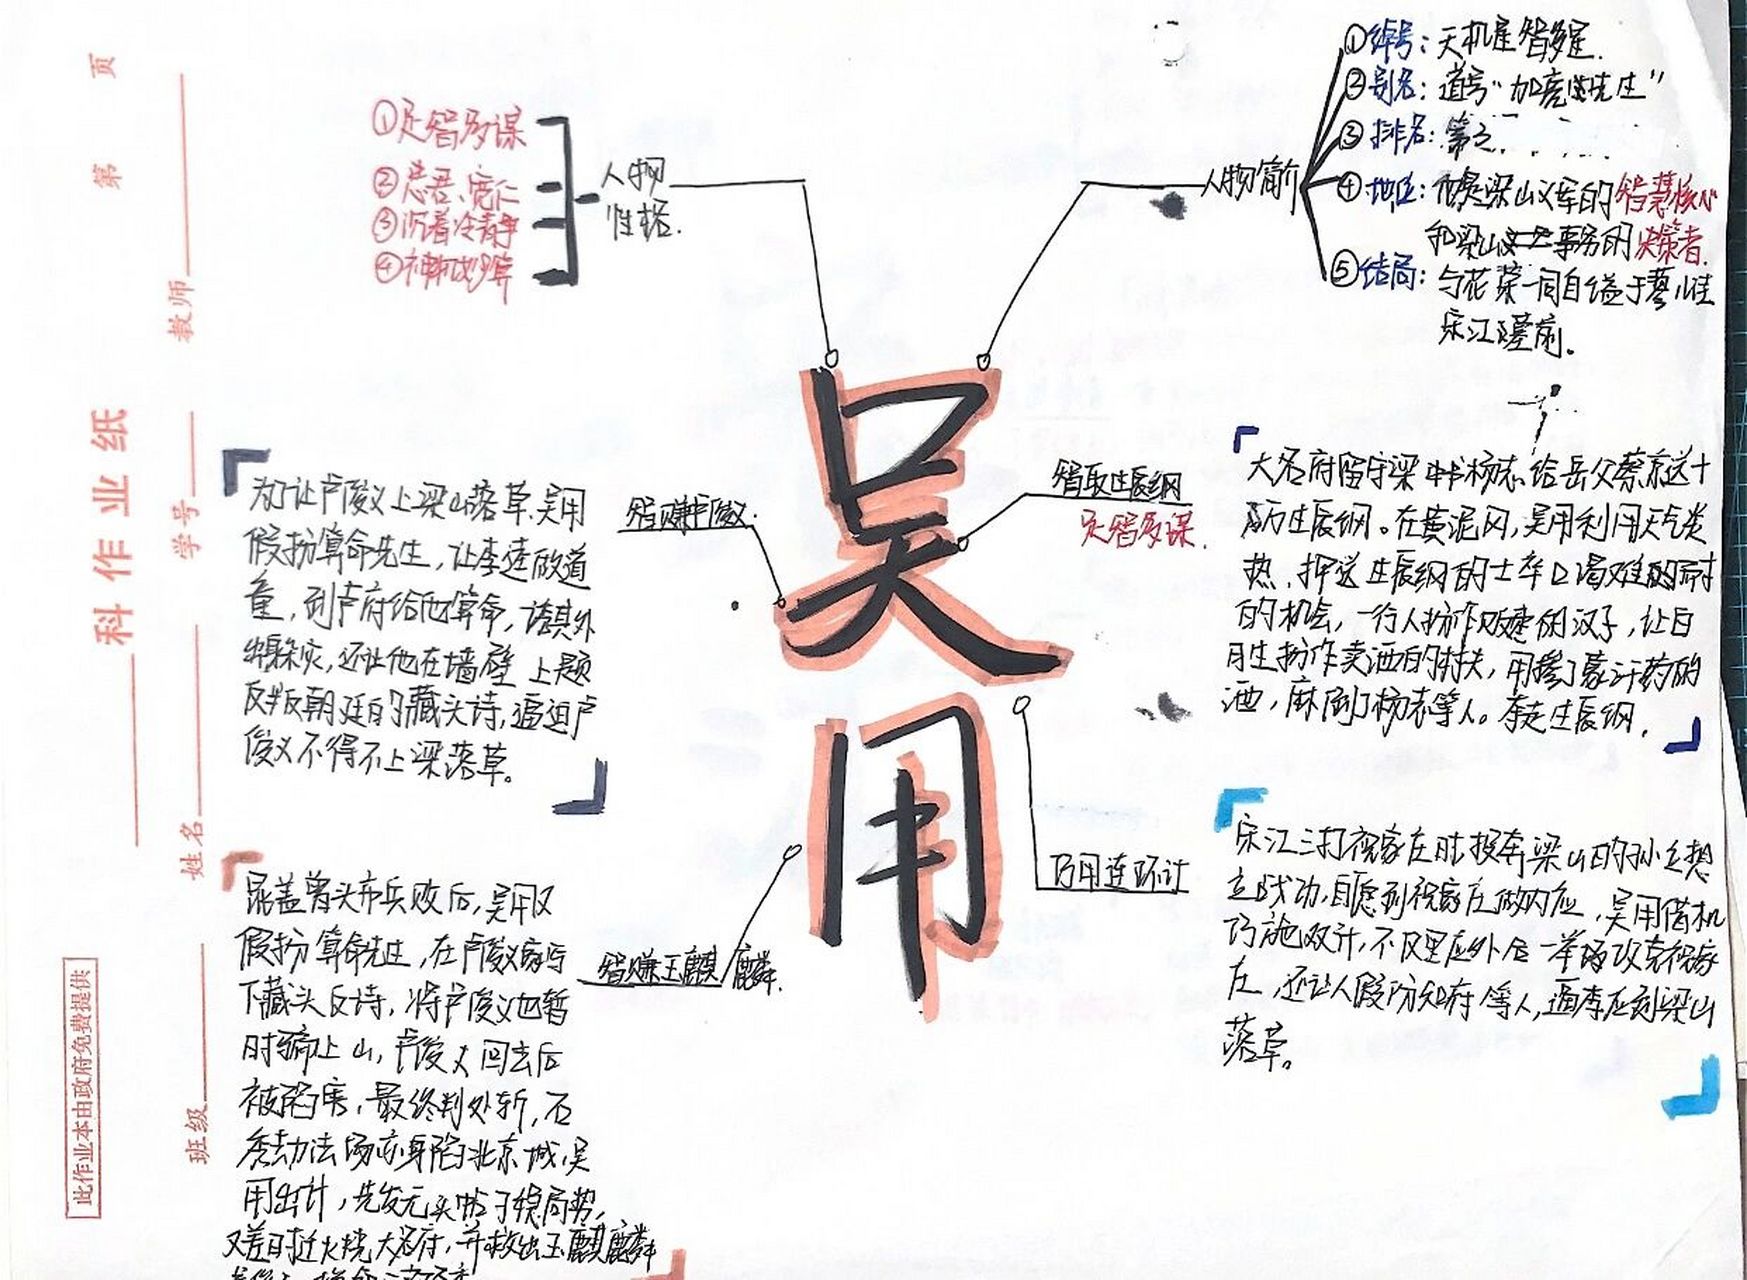 第 页
科作业纸
教师
学号
姓名
班级
此作业本由政府免费提供
吴用
人物性格
①足智多谋
②忠君、宽仁
③沉着冷静
④神机妙算
人物简介
①绰号：天机星智多星.
②别名：道号“加亮先生”
③排名：第三
④地位：他是梁山义军的智慧核心
和梁山事务的决策者.
⑤结局：与花荣一同自缢于蓼儿洼
宋江墓前。
智取生辰纲
足智多谋.
大名府留守梁中书杨志给岳父蔡京送十
万生辰纲。在黄泥冈，吴用利用天气炎
热，押送生辰纲的士卒口渴难耐
的机会，一行人扮作贩枣的汉子，让白
胜扮作卖酒的村夫，用掺了蒙汗药的
酒，麻倒了杨志等人。夺走生辰纲.
智赚卢俊义.
为了让卢俊义上梁山落草.吴用
假扮算命先生，让李逵做道
童，到卢府给他算命，诱其外
出躲灾，还让他在墙壁上题
反叛朝廷的藏头诗，逼迫卢
俊义不得不上梁落草。
巧用连环计
宋江三打祝家庄时投奔梁山的孙立想
立战功，自愿到祝家庄做内应，吴用借机
巧施双计，不仅里应外合一举攻克祝家
庄，还让人假扮知府等人，逼李应到梁山
落草。
智赚玉麒麟.
晁盖曾头市兵败后，吴用又
假扮算命先生，在卢俊义家写
下藏头反诗，将卢俊义也暂
时骗上山，卢俊义回去后
被陷害，最终判处斩，石
秀劫法场亦身陷北京城，吴
用出计，先发无头帖子稳局势，
又差时迁火烧大名府，并救出玉麒麟